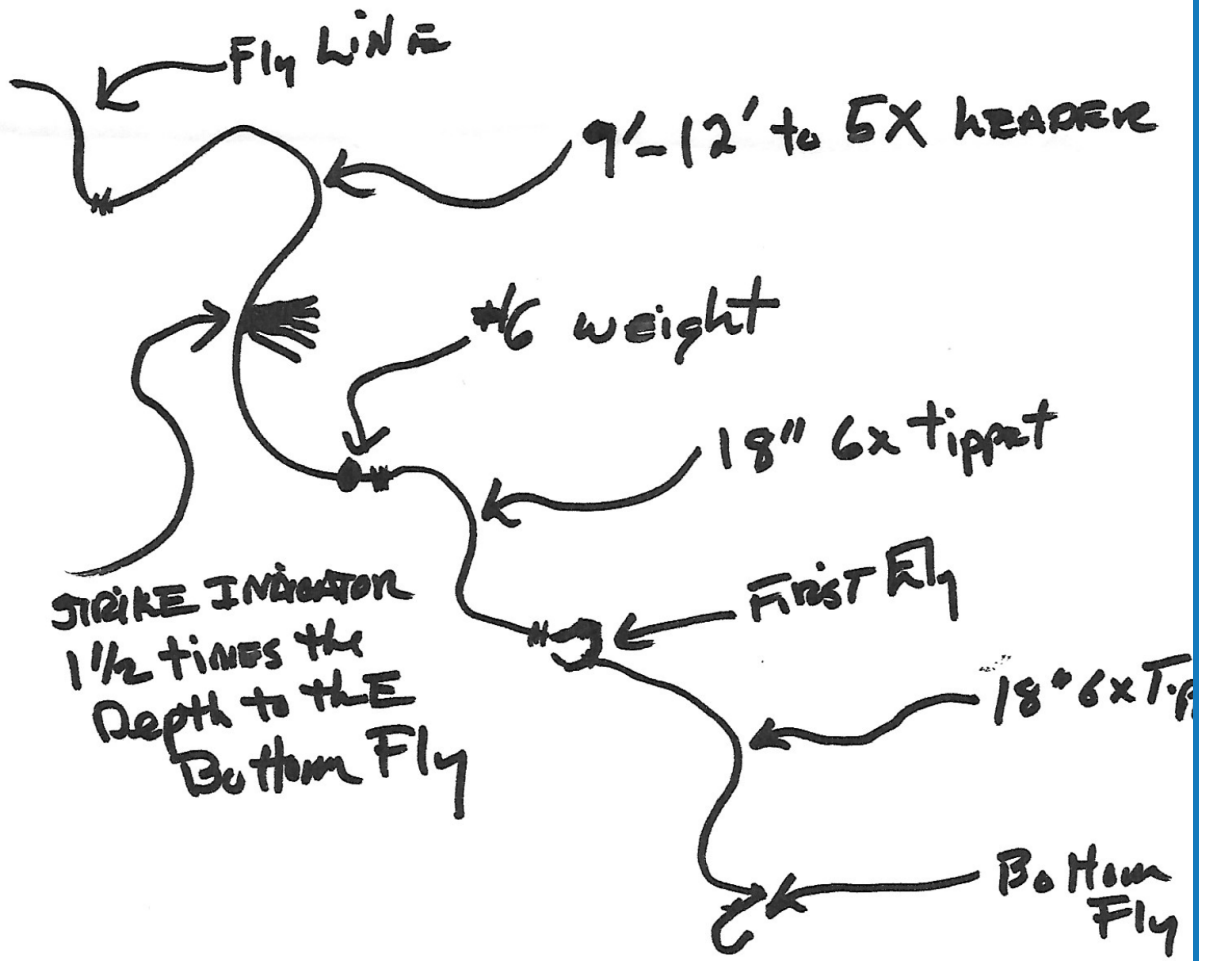 Fly LiNE
9'-12' to 5X LEADER
#6 weight
18" 6x tippet
First Fly
STRIKE INDICATOR
1 1/2 times the
Depth to thE
Bottom Fly
18" 6x Tip
Bottom
Fly